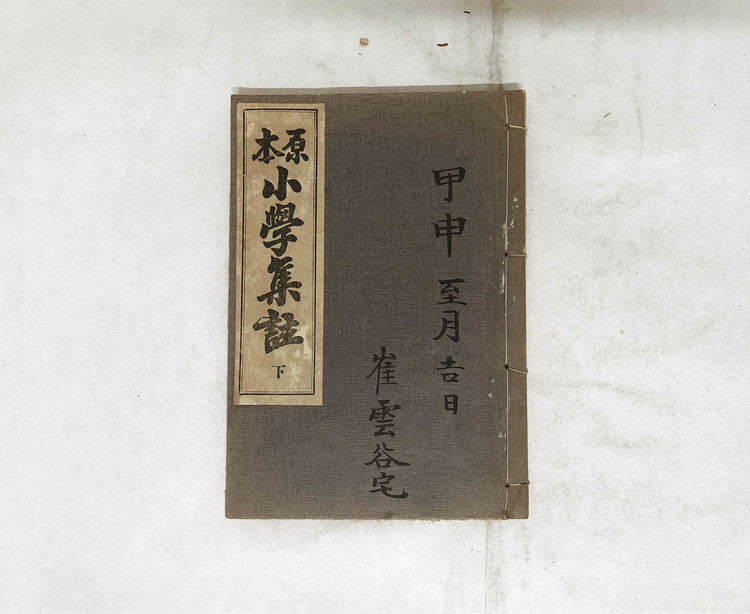 甲申至月吉日
崔雲谷宅
原本
小學集註
下